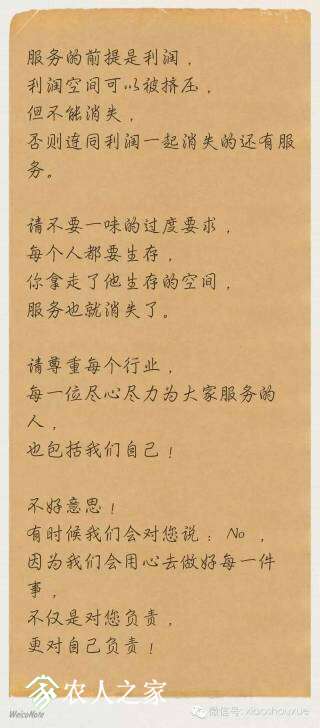 服务的前提是利润，
利润空间可以被挤压，
但不能消失，
否则连同利润一起消失的还有服
务。
请不要一味的过度要求，
每个人都要生存，
你拿走了他生存的空间，
服务也就消失了。
请尊重每个行业，
每一位尽心尽力为大家服务的
人，
也包括我们自己！
不好意思！
有时候我们会对您说：No，
因为我们会用心去做好每一件
事，
不仅是对您负责，
更对自己负责！
WeicoNote
农人之家
微信号: xiaoshouxue